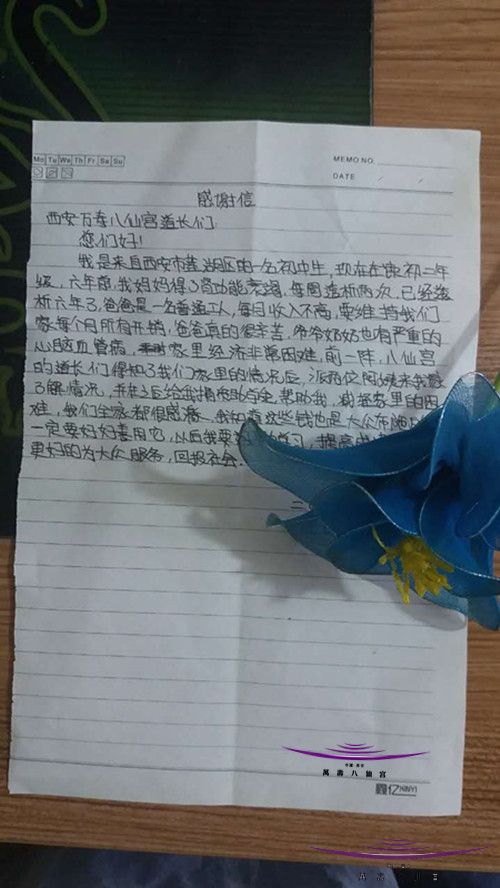 Mo Tu We Th Fr Sa Su
MEMO NO.
DATE / /
感谢信
西安万寿八仙宫道长们:
您们好!
我是来自西安市莲湖区的一名初中生,现在在读初二年
级,六年前,我妈妈得了肾功能衰竭,每周透析两次,已经透
析六年了,爸爸是一名普通工人,每月收入不高,要维持我们
家每个月所有开销,爸爸真的很辛苦,爷爷奶奶也有严重的
心脑血管病,家里经济非常困难,前一阵,八仙宫
的道长们得知了我们家里的情况后,派两位阿姨来我家
了解情况,并在之后给我捐來助学金,帮助我,
难,我们全家都很感激,我知道这些钱也是大众布施
一定要好好善用它,以后我要 学习,提高
更好的为大众服务,回报社会.
二
萬壽八仙宮
鑫亿 XINYI